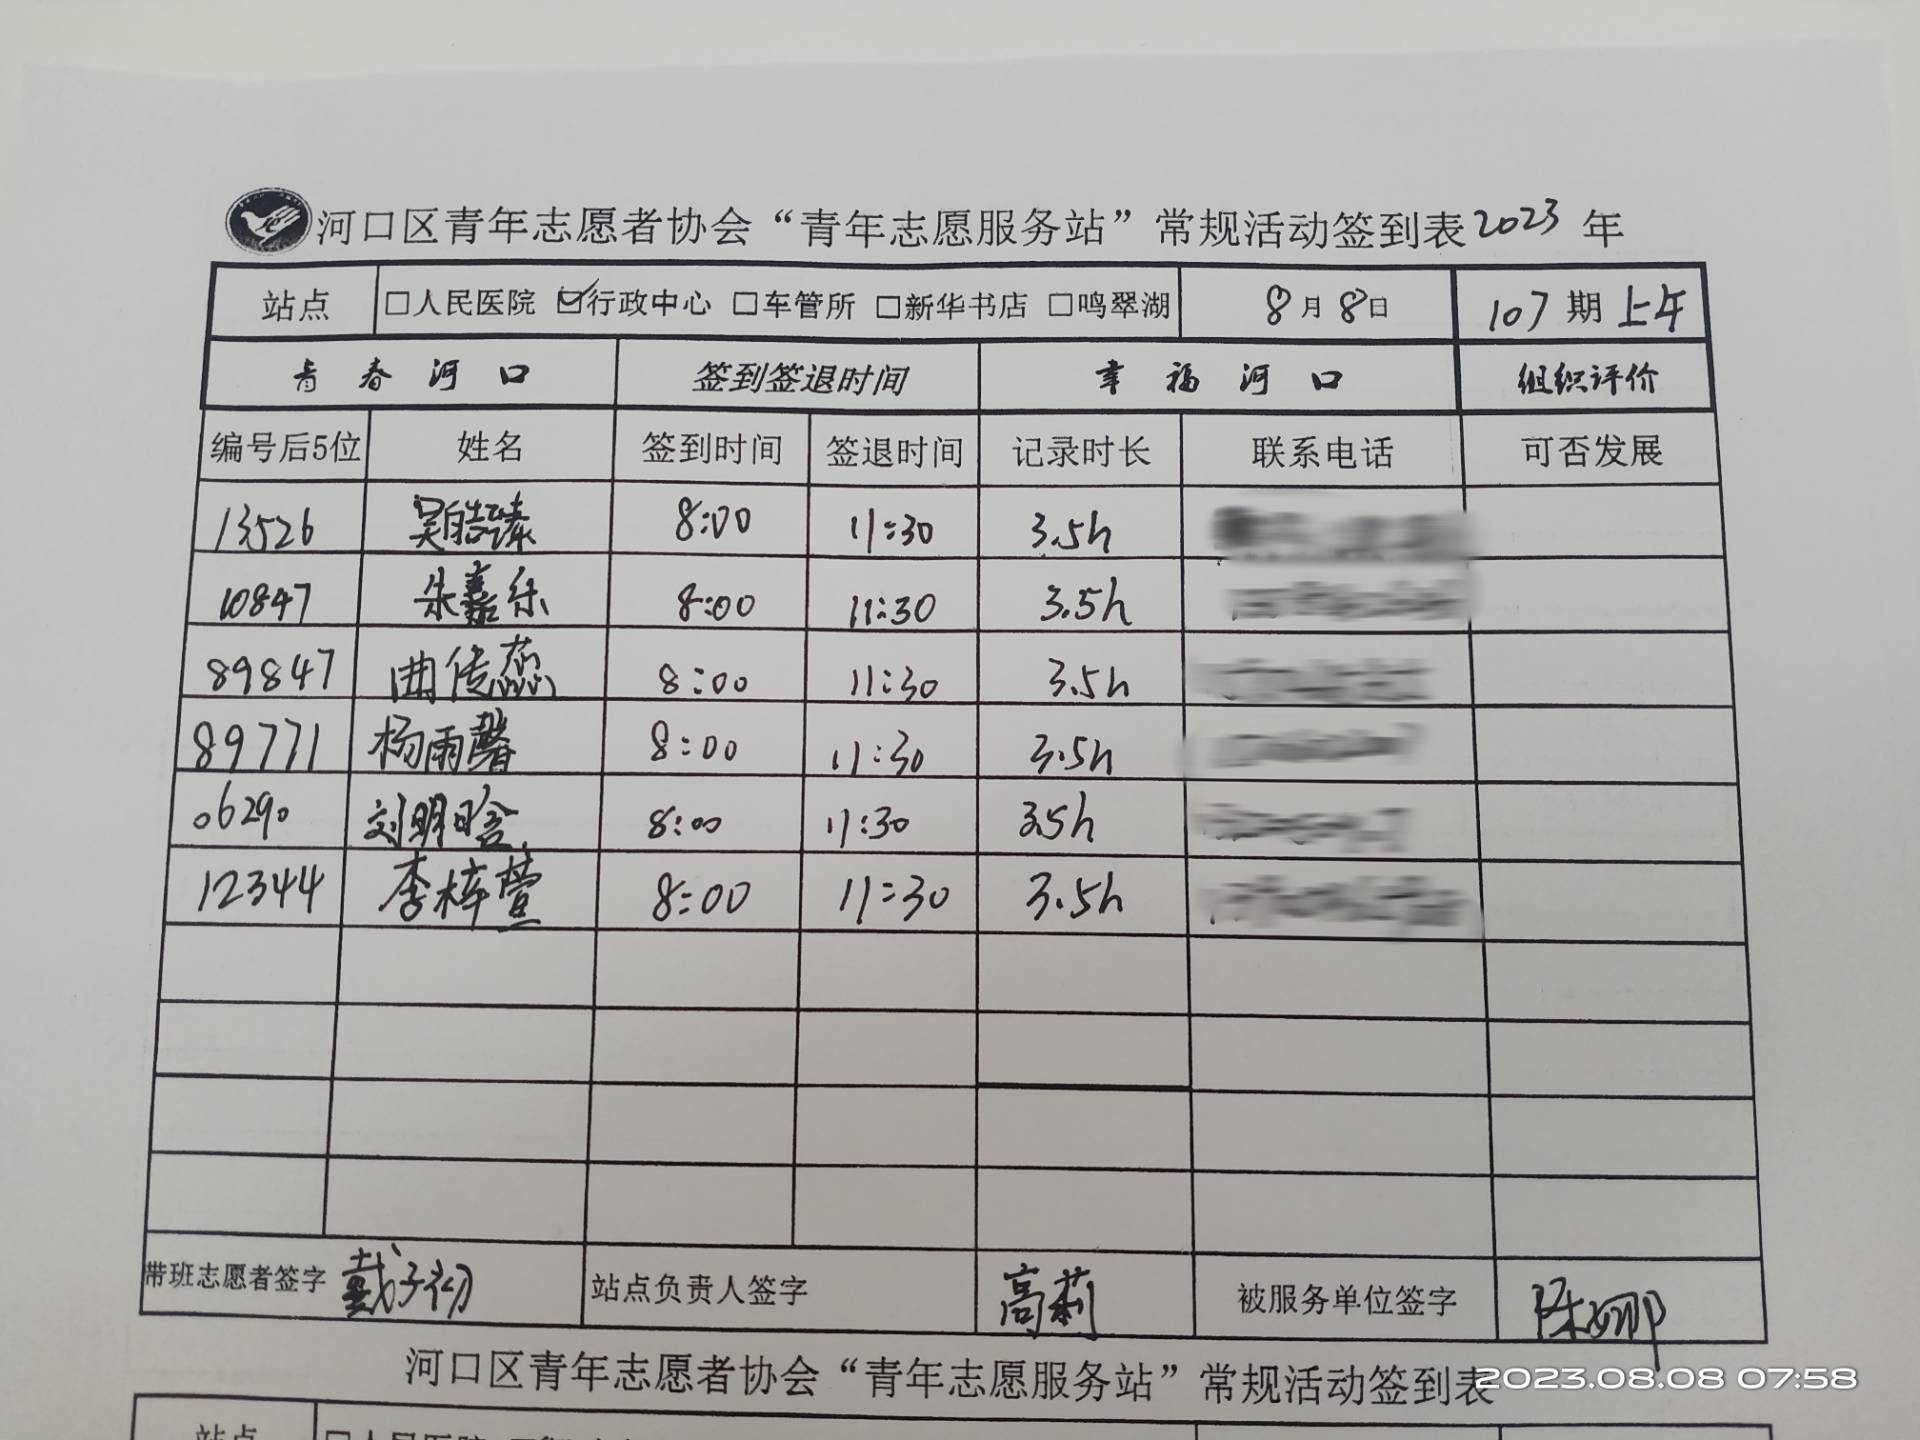 河口区青年志愿者协会“青年志愿服务站”常规活动签到表2023年
站点 □人民医院 ☑行政中心 □车管所 □新华书店 □鸣翠湖 8月8日 107期上午
青春河口 签到签退时间 幸福河口 组织评价
编号后5位 姓名 签到时间 签退时间 记录时长 联系电话 可否发展
13526 吴皓臻 8:00 11:30 3.5h
10847 朱嘉乐 8:00 11:30 3.5h
89847 曲传蕊 8:00 11:30 3.5h
89771 杨雨馨 8:00 11:30 3.5h
06290 刘明晗 8:00 11:30 3.5h
12344 李梓萱 8:00 11:30 3.5h
带班志愿者签字 戴子初 站点负责人签字 高莉 被服务单位签字 陈娜
河口区青年志愿者协会“青年志愿服务站”常规活动签到表
2023.08.08 07:58
站点 □人民医院